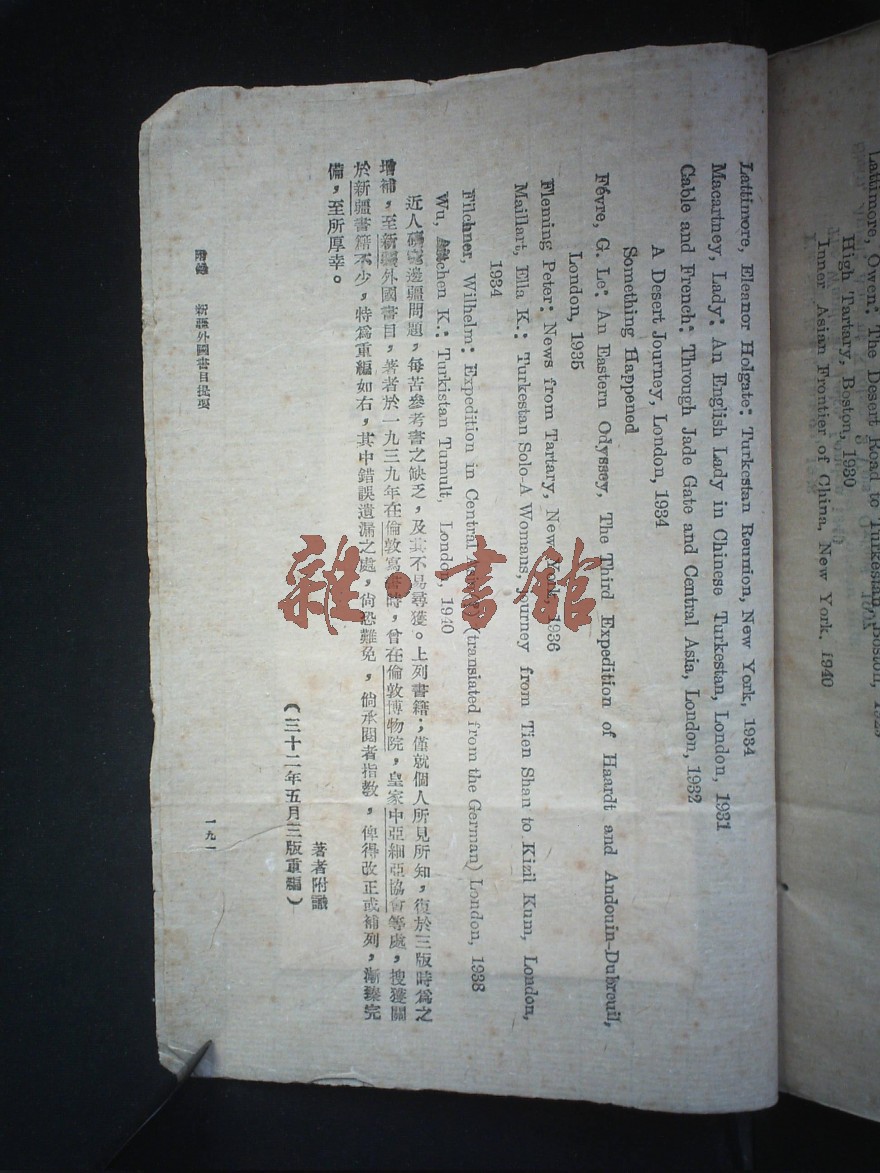 Lattimore, Owen: The Desert Road to Turkestan, Boston, 1929
High Tartary, Boston, 1930
Inner Asian Frontier of China, New York, 1940
Lattimore, Eleanor Holgate: Turkestan Reunion, New York, 1934
Macartney, Lady: An English Lady in Chinese Turkestan, London, 1931
Cable and French: Through Jade Gate and Central Asia, London, 1932
A Desert Journey, London, 1934
Something Happened
Févre, G. Le: An Eastern Odyssey, The Third Expedition of Haardt and Andouin-Dubreuil,
London, 1935
Fleming Peter: News from Tartary, New York, 1936
Maillart, Ella K.: Turkestan Solo-A Womans, Journey from Tien Shan to Kizil Kum, London,
1934
Filchner, Wilhelm: Expedition in Central (translated from the German) London, 1938
Wu, K.: Turkistan Tumult, London, 1940
近人邊疆問題,每苦參考書之缺乏,及其不易尋獲。上列書籍;僅就個人所見所知,復於三版時爲之
增補,至新疆外國書目,著者於一九三九年在倫敦寫時,曾在倫敦博物院,皇家中亞細亞協會等處,搜獲關
於新疆書籍不少,特爲重編如右,其中錯誤遺漏之處,尙恐難免,倘承閱者指教,俾得改正或補列,漸臻完
備,至所厚幸。
著者附識
(三十二年五月三版重編)
附錄 新疆外國書目提要
一九一
雜·書館